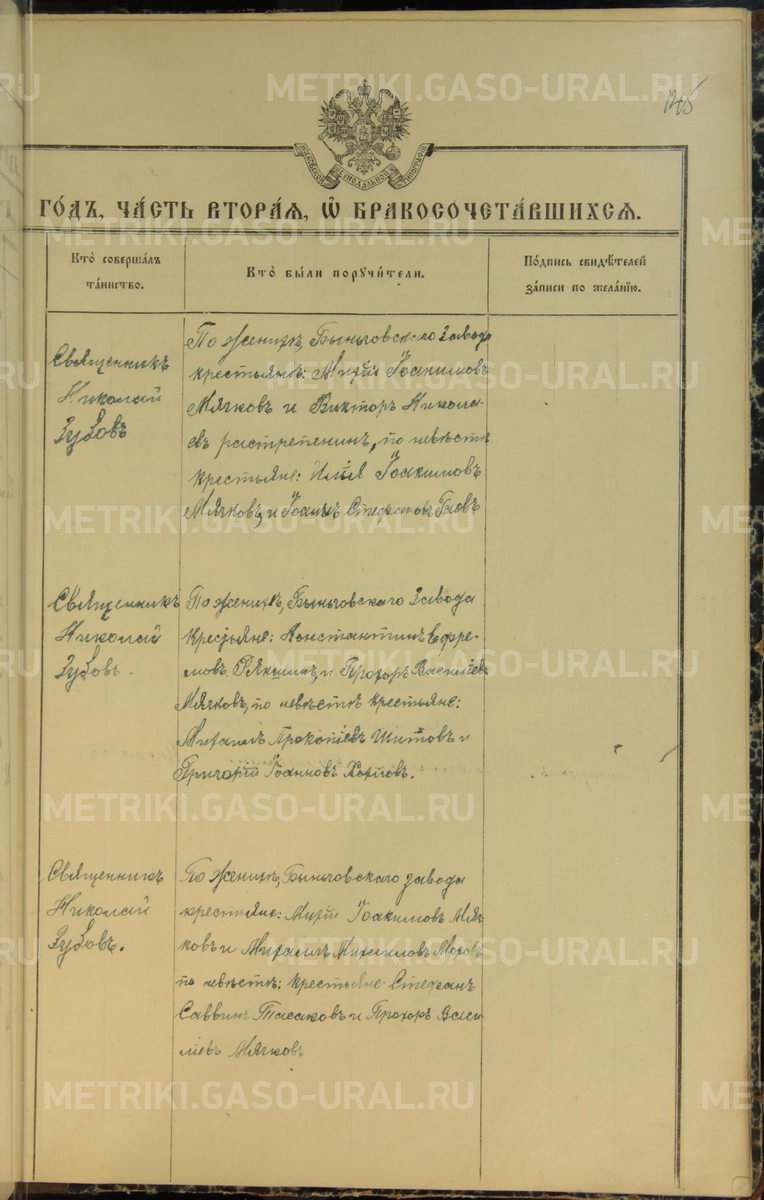 METRIKI.GASO-URAL.RU
МОСКОВСКОЙ СѴНОДАЛЬНОЙ ТИПОГРАФІИ
ГО́ДЪ, ЧА́СТЬ ВТОРА́Я, Ѿ БРАКОСОЧЕТА́ВШИХСЯ.
Кто̀ совершáлъ
тáинство.
Кто̀ бы́ли порꙋчи́тели.
По́дпись свидѣ́телей
зáписи по желáнїю.
Священникъ
Николай
Зубовъ
По женихѣ, Быньговскаго завода
крестьяне: Мирій Іоакимовъ
Мячковъ и Викторъ Никола-
евъ растрепенинъ, по невѣстѣ
крестьяне: Илія Іоакимовъ
Мячковъ, и Іоаннъ Стефановъ Гаевъ
Священникъ
Николай
Зубовъ.
По женихѣ, Быньговскаго завода
крестьяне: Константинъ Ефре-
мовъ и Прохоръ Василіевъ
Мячковъ, по невѣстѣ крестьяне:
Михаилъ Прокопіевъ Шитовъ и
Григорій Іоанновъ
Священникъ
Николай
Зубовъ.
По женихѣ, Быньговскаго завода
крестьяне: Мирій Іоакимовъ Мяч-
ковъ и Михаилъ Михаиловъ
по невѣстѣ: крестьяне Стефанъ
Саввинъ и Прохоръ Васи-
ліевъ Мячковъ